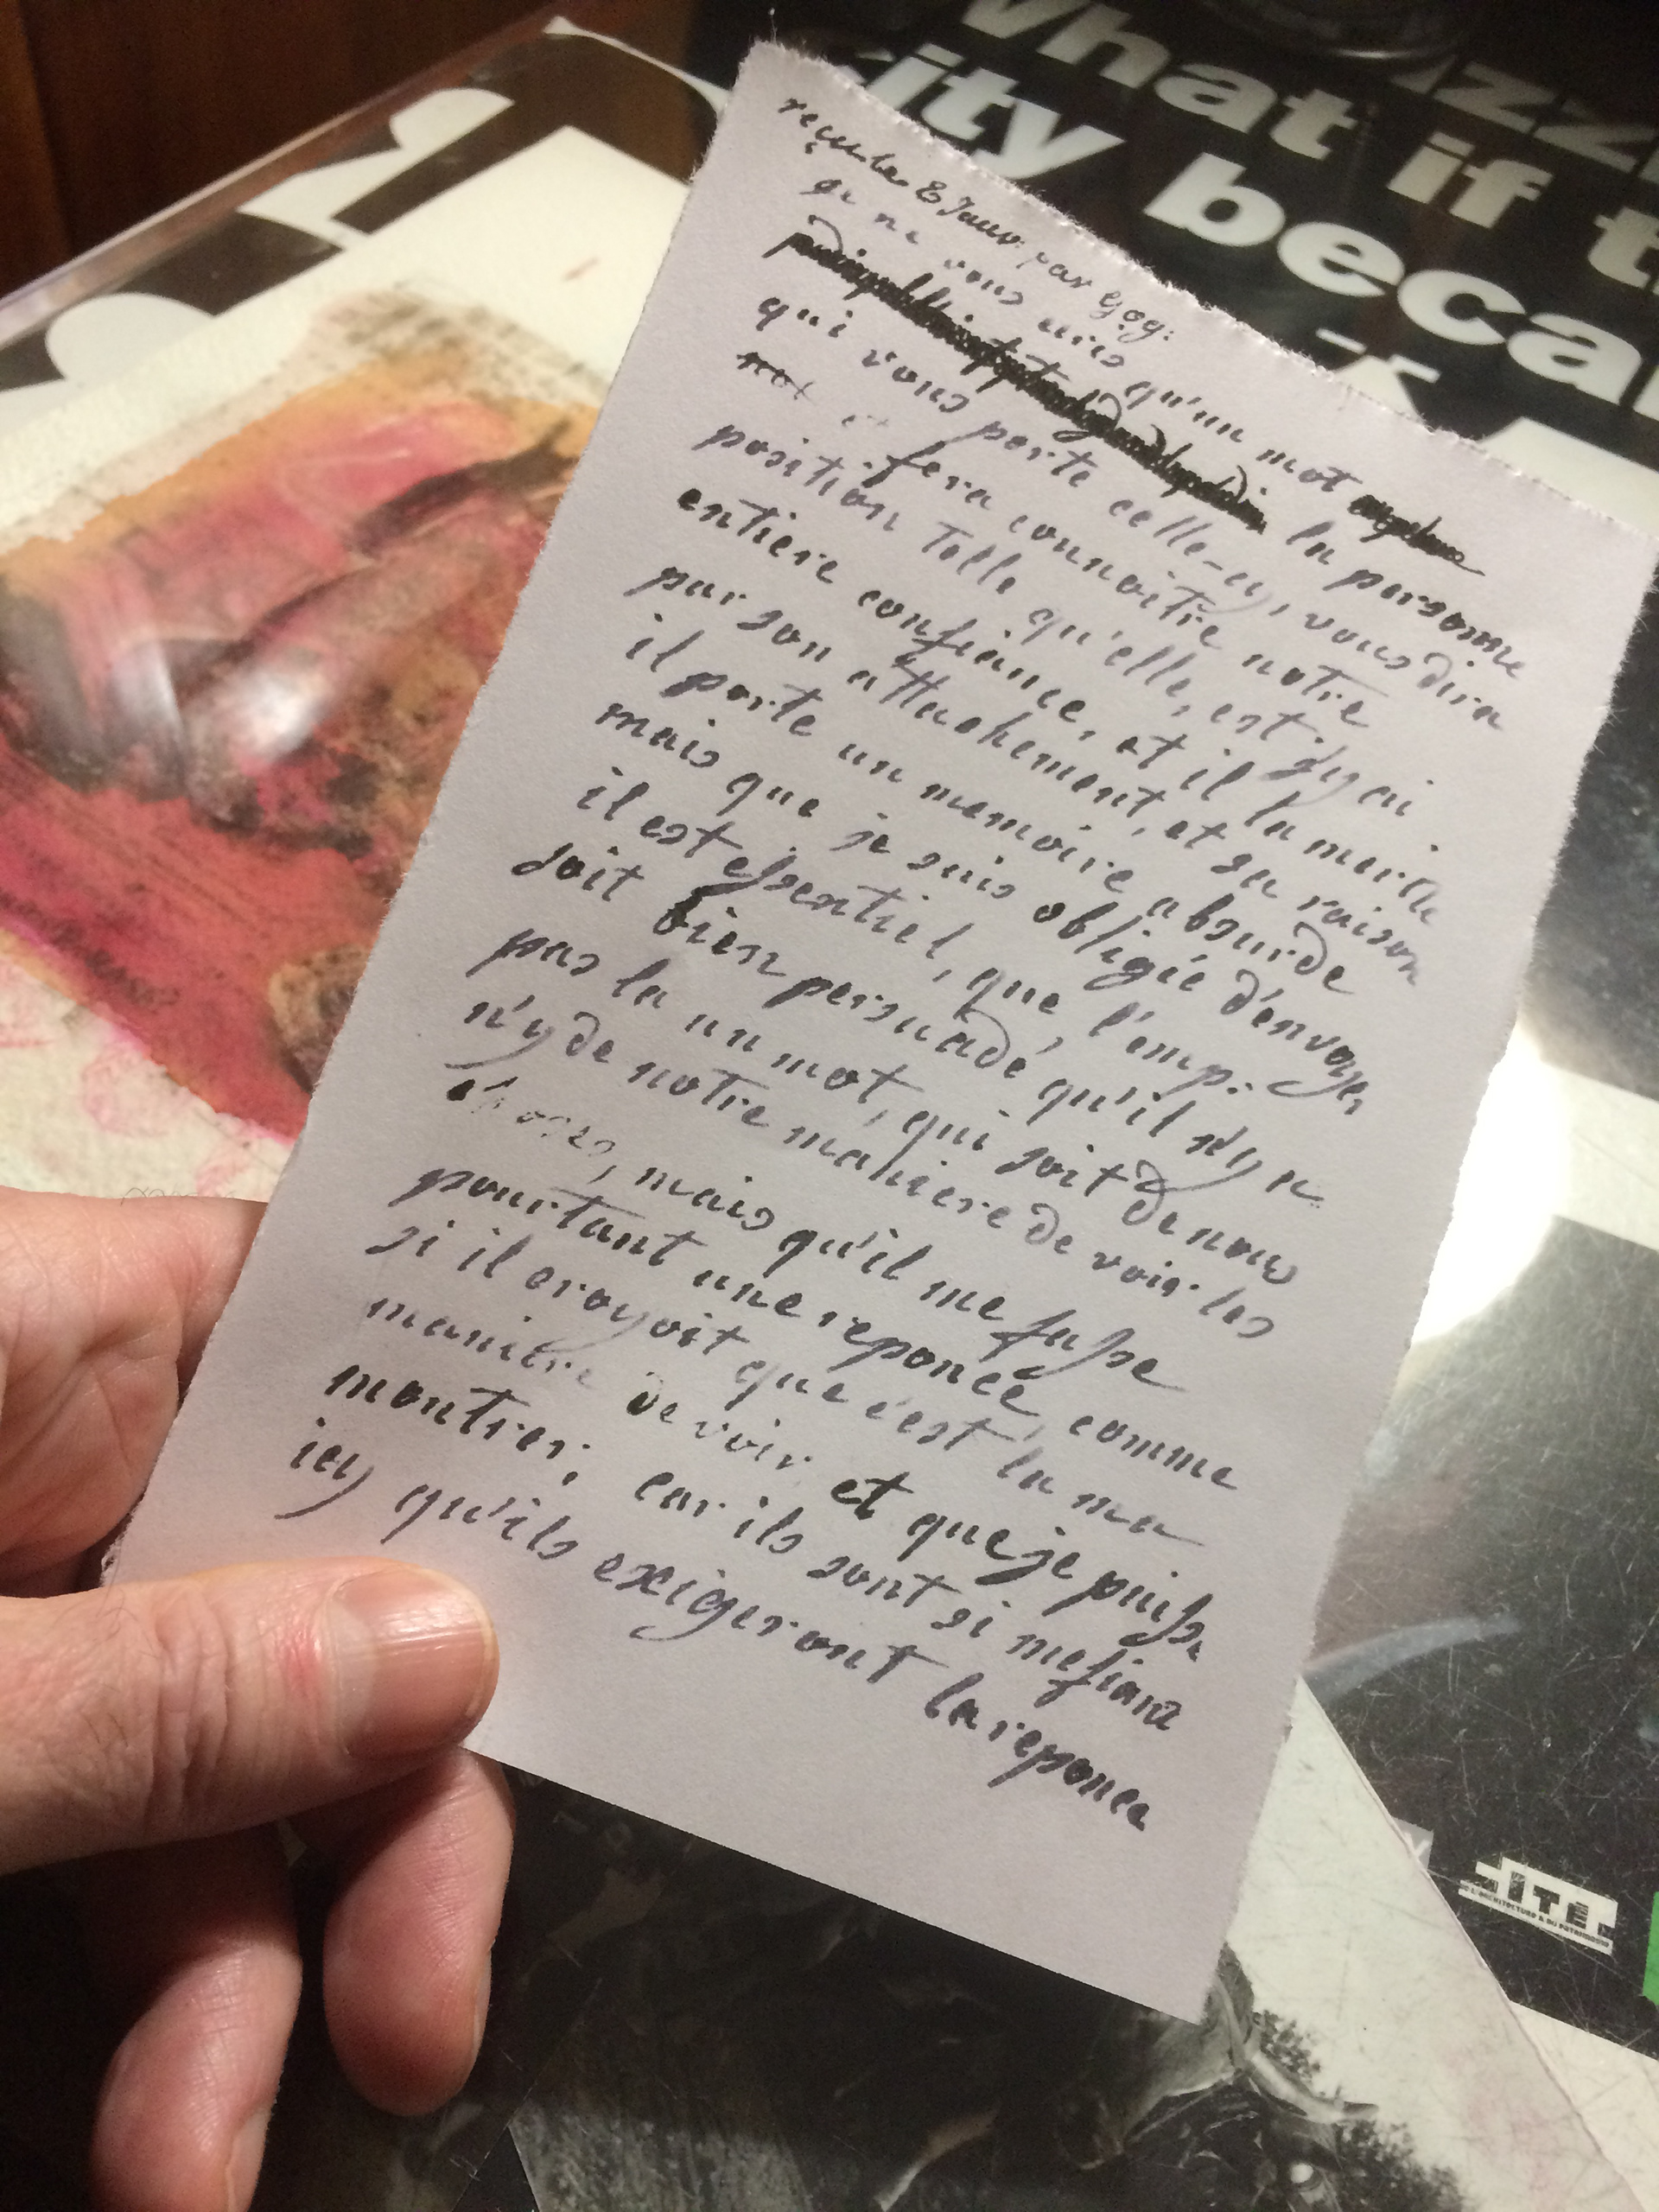 izzi
what if t
ity beca
reçu le 8 Janv: par Gog:
je ne vous écris qu'un mot
la personne
qui vous porte celle-cy, vous dira
fera connoitre notre
position telle qu'elle, est j'y ai
entiere confiance, et il la merite
par son attachement, et sa raison
il porte un memoire absurde
mais que je suis obligée d'envoyer
il est essentiel, que l'emp:
soit bien persuadé qu'il n'y a
pas la un mot, qui soit de nous
n'y de notre maniere de voir les
choses, mais qu'il me fasse
pourtant une reponce, comme
si il croyoit que c'est la ma
maniere de voir et que je puisse
montrer; car ils sont si mefians
icy qu'ils exigeront la reponce
CITÉ
DE L'ARCHITECTURE & DU PATRIMOINE